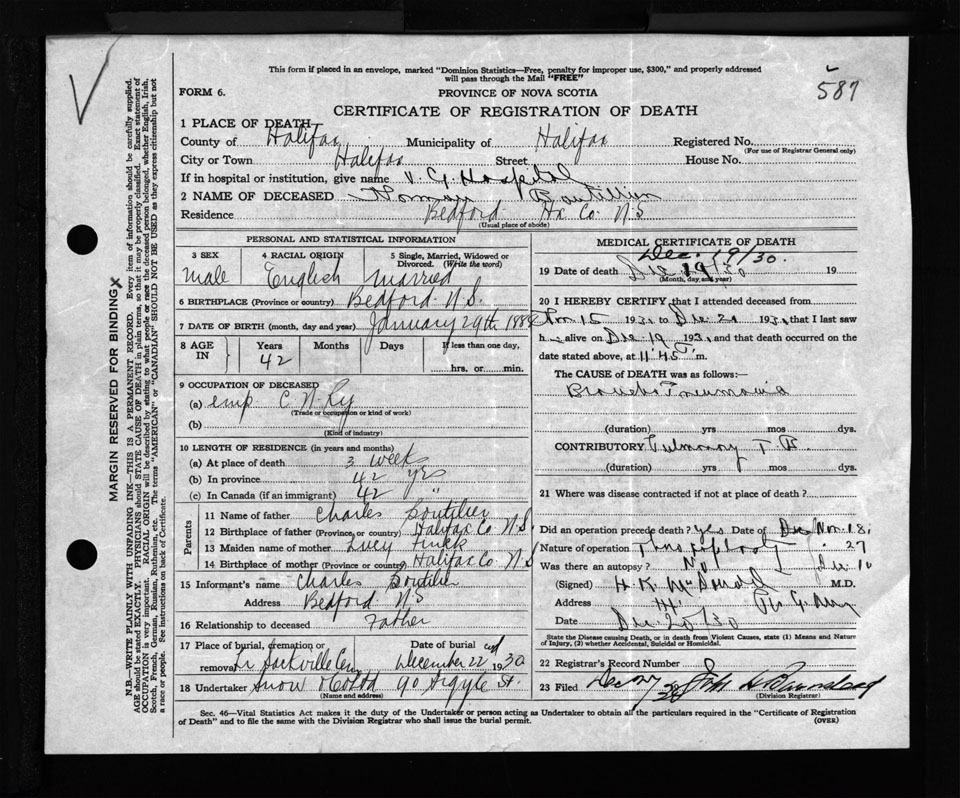 587
This form if placed in an envelope, marked "Dominion Statistics—Free, penalty for improper use, $300," and properly addressed
will pass through the Mail "FREE"
FORM 6. PROVINCE OF NOVA SCOTIA
CERTIFICATE OF REGISTRATION OF DEATH
1 PLACE OF DEATH
County of Halifax Municipality of Halifax Registered No.
(For use of Registrar General only)
City or Town Halifax Street House No.
If in hospital or institution, give name V. G. Hospital
2 NAME OF DECEASED Thomas Boutilier
Residence Bedford Hx Co. N.S
(Usual place of abode)
PERSONAL AND STATISTICAL INFORMATION
3 SEX 4 RACIAL ORIGIN 5 Single, Married, Widowed or
Divorced. (Write the word)
Male English Married
6 BIRTHPLACE (Province or country) Bedford N.S.
7 DATE OF BIRTH (month, day and year) January 29th
8 AGE IN Years Months Days If less than one day,
42 hrs. or min.
9 OCCUPATION OF DECEASED
(a) emp C. N. Ry
(Trade or occupation or kind of work)
(b)
(Kind of industry)
10 LENGTH OF RESIDENCE (in years and months)
(a) At place of death 3 weeks
(b) In province 42 yrs
(c) In Canada (if an immigrant) 42 "
Parents
11 Name of father Charles Boutilier
12 Birthplace of father (Province or country) Halifax Co N.S.
13 Maiden name of mother Lucy
14 Birthplace of mother (Province or country) Halifax Co. N S
15 Informant's name Charles Boutilier
Address Bedford N S
16 Relationship to deceased Father
17 Place of burial, cremation or Date of burial
removal Sackville Cem December 22 1930
18 Undertaker Snow 90 Argyle St.
MEDICAL CERTIFICATE OF DEATH
Dec. 19/30.
19 Date of death Dec 19/30 19
(Month, day and year)
20 I HEREBY CERTIFY that I attended deceased from
Nov 15 193 to Dec 20 193 , that I last saw
h alive on Dec 19 193 , and that death occurred on the
date stated above, at 11.45 m.
The CAUSE of DEATH was as follows:—
Broncho Pneumonia
(duration) yrs mos dys.
CONTRIBUTORY Pulmonary T. B.
(duration) yrs mos dys.
21 Where was disease contracted if not at place of death?
Did an operation precede death? yes Date of Nov. 18,
Nature of operation Thoracoplasty 27
Was there an autopsy? No Dec 10
(Signed) H. K. McDonald M.D.
Address
Date Dec 20/30
State the Disease causing Death, or in death from Violent Causes, state (1) Means and Nature
of Injury, (2) whether Accidental, Suicidal or Homicidal.
22 Registrar's Record Number
23 Filed John
(Division Registrar)
Sec. 46—Vital Statistics Act makes it the duty of the Undertaker or person acting as Undertaker to obtain all the particulars required in the "Certificate of Registration
of Death" and to file the same with the Division Registrar who shall issue the burial permit. (OVER)
MARGIN RESERVED FOR BINDING
N.B.—WRITE PLAINLY WITH UNFADING INK—THIS IS A PERMANENT RECORD. Every item of information should be carefully supplied.
AGE should be stated EXACTLY. PHYSICIANS should STATE CAUSE OF DEATH in plain terms, so that it may be properly classified. Exact statement of
OCCUPATION is very important. RACIAL ORIGIN will be described by stating to what people or race the deceased person belonged, whether English, Irish,
Scotch, French, German, Russian, Ruthenian, etc. The terms "AMERICAN" or "CANADIAN" SHOULD NOT BE USED as they express citizenship but not
a race or people. See instructions on back of Certificate.